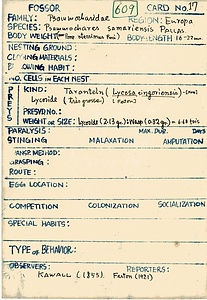 FOSSOR 609 CARD No. 17
FAMILY: Psammocharidae REGION: Europa
SPECIES: Psammochares samariensis Pallas
BODY WEIGHT: BODY LENGTH 16-22mm.
NESTING GROUND:
CLOSING MATERIALS:
CLOSING HABIT:
NO. CELLS IN EACH NEST
PREYS KIND: Taranteln (Lycosa singoriensis)
Lycoside
PREY NO.:
WEIGHT OR SIZE: Lycoside (2.13 gr.) Wasp (0.32 gr.) = 6.63
PARALYSIS: MAX. DUR. DAYS
STINGING MALAXATION AMPUTATION
METHOD:
GRASPING:
ROUTE:
EGG LOCATION:
COMPETITION COLONIZATION SOCIALIZATION
SPECIAL HABITS:
TYPE OF BEHAVIOR:
OBSERVERS: REPORTERS:
KAWALL (1855). Ferton (1921)